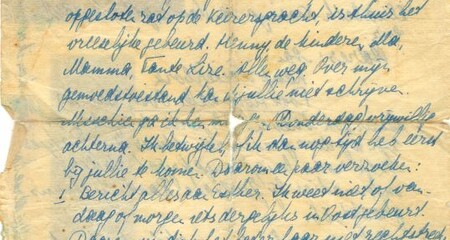 opgesloten zat op de Keizersgracht, is thuis het
vreselijke gebeurd. Henny de kinderen, Ma,
Mamma, Tante Lize. Alles weg. Over mijn
gemoedstoestand kan ik jullie niet schrijven.
Misschien ga ik hen Donderdag vrijwillig
achterna. Ik betwijfel ik dan nog tijd heb eerst
bij jullie te komen. Daarom een paar verzoeken:
1. Bericht alles aan Esther. Ik weet niet of van-
daag of morgen iets dergelijks in Oost gebeurd